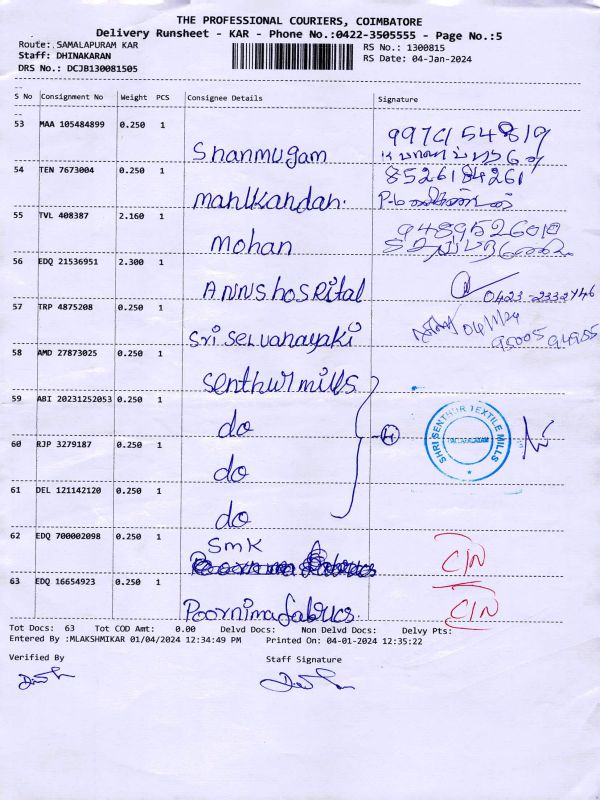 THE PROFESSIONAL COURIERS, COIMBATORE
Delivery Runsheet - KAR - Phone No.:0422-3505555 - Page No.:5
Route: SAMALAPURAM KAR
RS No.: 1300815
Staff: DHINAKARAN
RS Date: 04-Jan-2024
DRS No.: DCJB130081505
S No Consignment No Weight PCS Consignee Details Signature
53 MAA 105484899 0.250 1 Shanmugam
54 TEN 7673004 0.250 1 manikandan. 8526184261
55 TVL 408387 2.160 1 mohan 9489526010
56 EDQ 21536951 2.300 1 ANNS hosPital
57 TRP 4875208 0.250 1 Sri selvanayaki 04/1/24
58 AMD 27873025 0.250 1 Senthur mills
59 ABI 20231252053 0.250 1 do
SHRI SENTHUR TEXTILE MILLS
60 RJP 3279187 0.250 1 do
61 DEL 121142120 0.250 1 do
62 EDQ 700002098 0.250 1 SMK C/N
63 EDQ 16654923 0.250 1 Poornima fabrics. C/N
Tot Docs: 63 Tot COD Amt: 0.00 Delvd Docs: Non Delvd Docs: Delvy Pts:
Entered By :MLAKSHMIKAR 01/04/2024 12:34:49 PM Printed On: 04-01-2024 12:35:22
Verified By Staff Signature